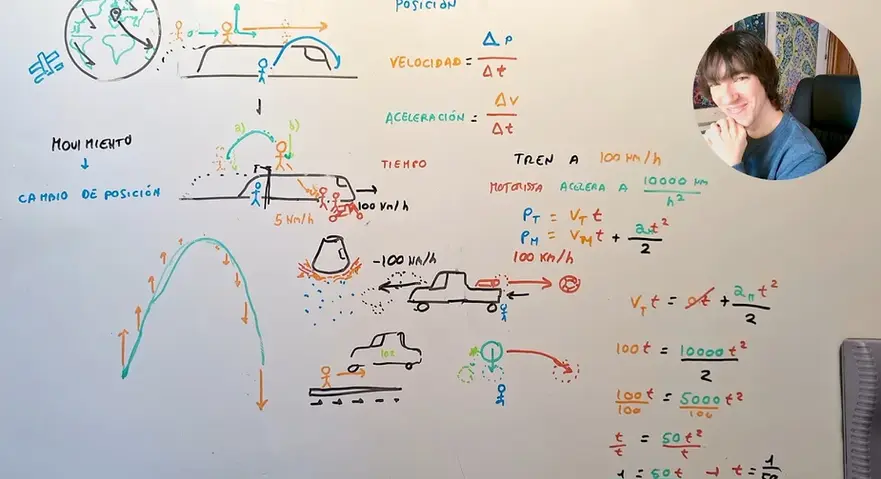 POSICIÓN
VELOCIDAD = Δp/Δt
ACELERACIÓN = Δv/Δt
MOVIMIENTO
↓
CAMBIO DE POSICIÓN
a) b)
TIEMPO
100 Km/h
5 Km/h
-100 Km/h
100 Km/h
TREN A 100 Km/h
MOTORISTA ACELERA A 10000 Km/h²
P_T = V_T t
P_M = V_M t + at²/2
V_T t = 0t + a_M t²/2
100t = 10000t²/2
100t/100 = 5000t²/100
t/t = 50t²/t
1 = 50t → t = 1/50